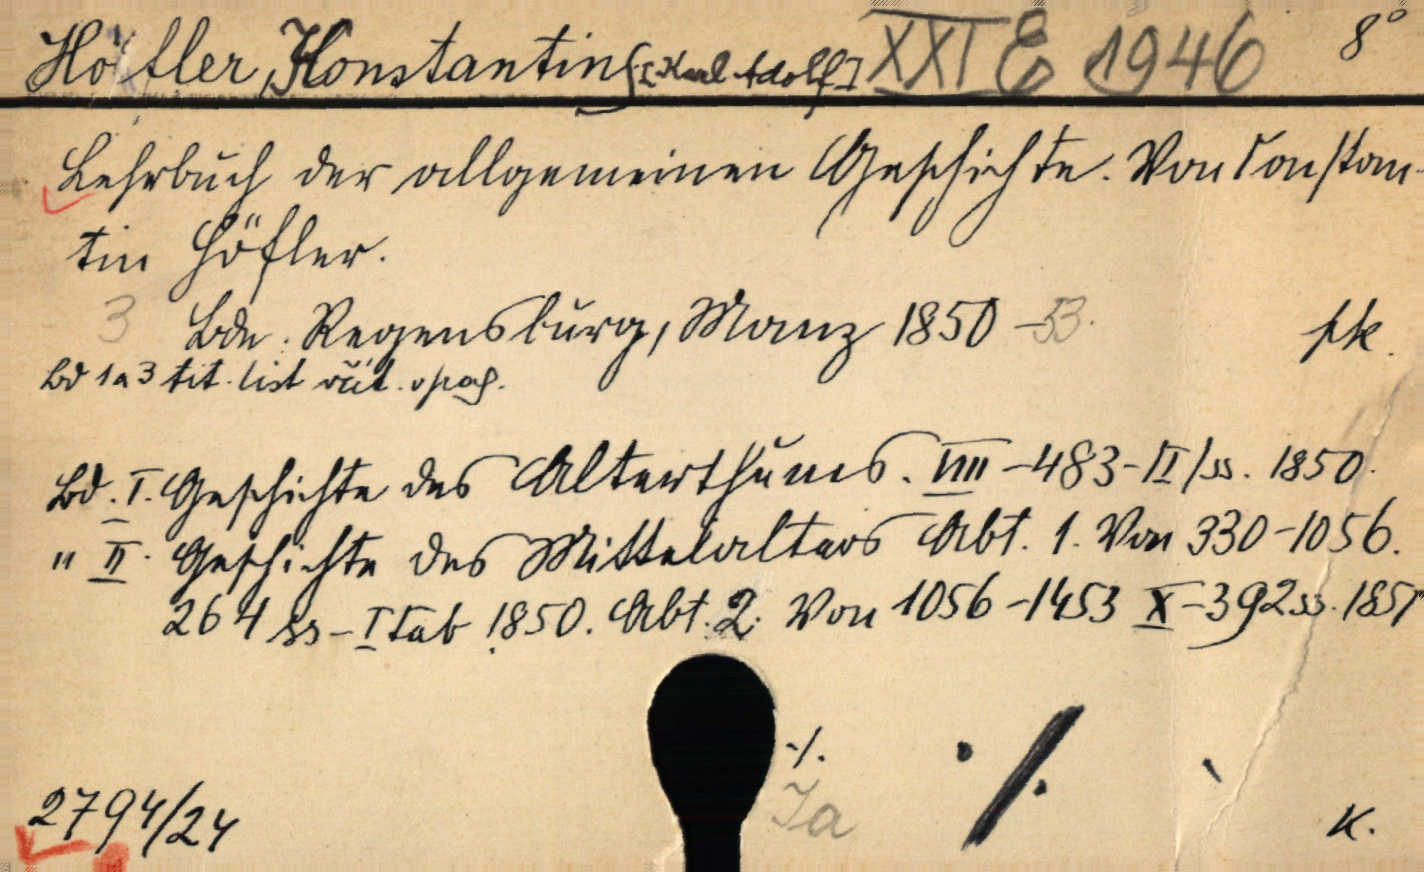 Höfler, Konstantin [Karl Adolf] XXI E 1946 8°
Lehrbuch der allgemeinen Geschichte. Von Constan-
tin Höfler.
3 Bde. Regensburg, Manz 1850-53.
Bd 1 a 3 tit. list
Bd. I. Geschichte des Alterthums. VIII-483-II ss. 1850.
" II. Geschichte des Mittelalters Abt. 1. Von 330-1056.
264 ss - I Tab 1850. Abt. 2. Von 1056-1453 X-392 ss. 1851
·/.
·/.
Ja
2794/24 K.